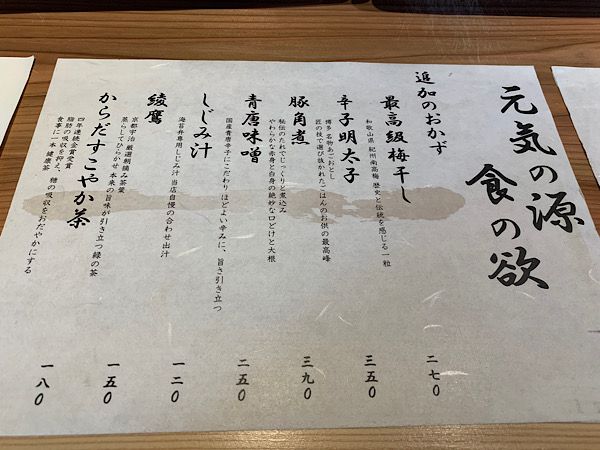 元気の源
食の欲
追加のおかず
最高級梅干し
和歌山県 紀州南高梅 歴史と伝統を感じる一粒
二七〇
辛子明太子
博多名物あごおとし
匠の技で選び抜かれたごはんのお供の最高峰
三五〇
豚角煮
秘伝のたれでじっくりと煮込み
やわらかな赤身と白身の絶妙な口どけと大根
三九〇
青唐味噌
国産青唐辛子にこだわりほどよい辛みに、旨さ引き立つ
二五〇
しじみ汁
海苔弁専用しじみ汁 当店自慢の合わせ出汁
一二〇
綾鷹
京都宇治 厳選朝摘み茶葉
蒸らしてひらかせ 本来の旨味が引き立つ緑の茶
一五〇
からだすこやか茶
四年連続金賞受賞
脂肪の吸収を抑え、糖の吸収をおだやかにする
食事に一本 健康茶
一八〇